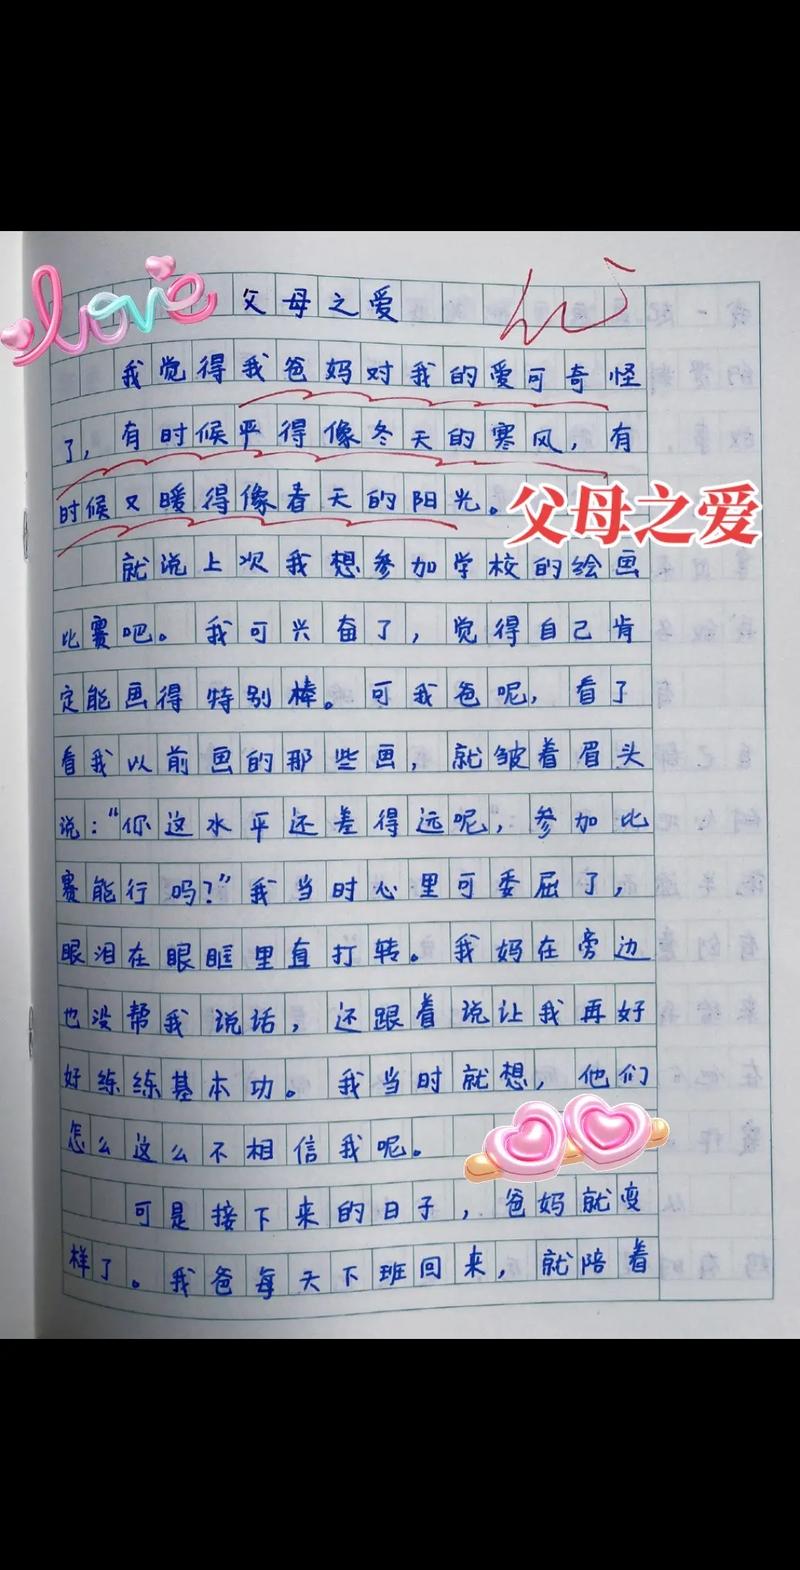 love
父母之爱
我觉得我爸妈对我的爱可奇怪
了，有时候严得像冬天的寒风，有
时候又暖得像春天的阳光。
父母之爱
就说上次我想参加学校的绘画
比赛吧。我可兴奋了，觉得自己肯
定能画得特别棒。可我爸呢，看了
看我以前画的那些画，就皱着眉头
说：“你这水平还差得远呢，参加比
赛能行吗？”我当时心里可委屈了，
眼泪在眼眶里直打转。我妈在旁边
也没帮我说话，还跟着说让我再好
好练练基本功。我当时就想，他们
怎么这么不相信我呢。
可是接下来的日子，爸妈就变
样了。我爸每天下班回来，就陪着